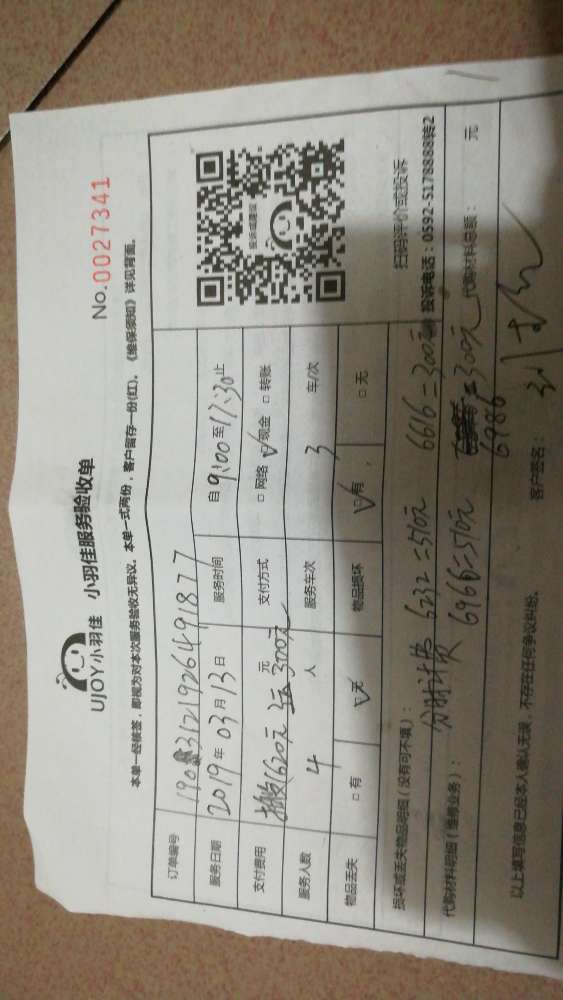 UJOY小羽佳 小羽佳服务验收单
No.0027341
本单一经核签，即视为对本次服务验收无异议，本单一式两份，客户留存一份(红)。《维保须知》详见背面。
订单编号 31219264 91877
服务日期 2019年03月13日 服务时间 自9:00至17:30止
支付费用 搬1620元 300元 元 支付方式 □网络 ☑现金 □转账
服务人数 4 人 服务车次 3 车/次
物品丢失 □有 ☑无 物品损坏 ☑有， □无
投诉或建议
扫码评价或投诉
投诉电话：0592-5178888转2
损坏或丢失物品明细（没有可不填）：
分时计费 6232=510元 6616=300元
代购材料明细（维修业务）： 6966=510元 6986=300元 代购材料总额： 元
以上填写信息已经本人确认无误，不存在任何争议纠纷。 客户签名：